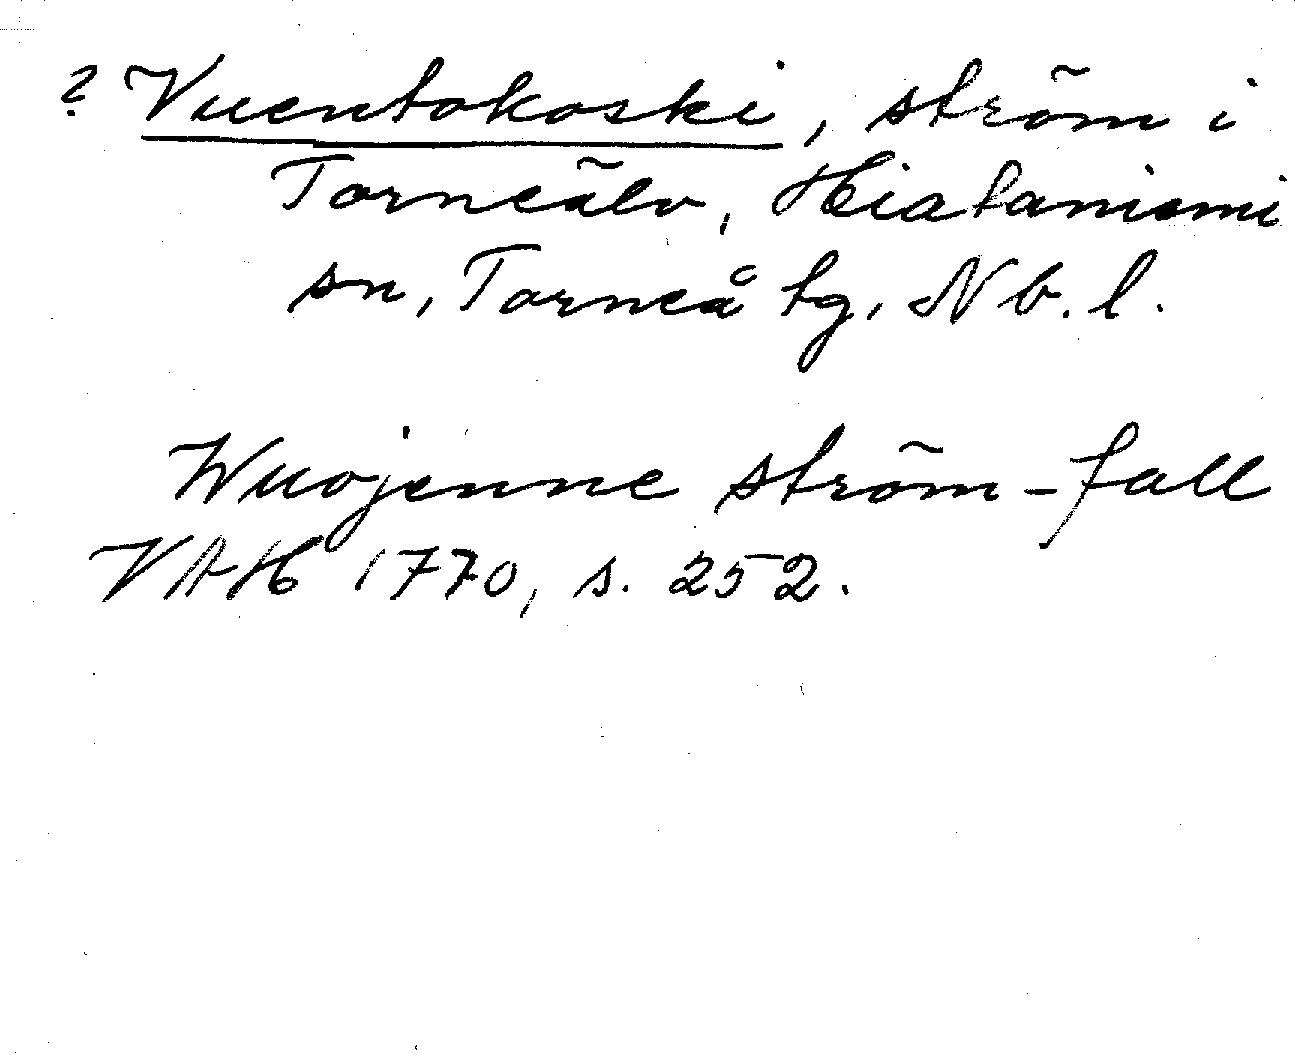 ? Vuentokoski, ström i
Torneälv, Hiataniemi
sn, Torneå tg, Nb. l.
Wuojenne ström-fall
VAH 1770, s. 252.